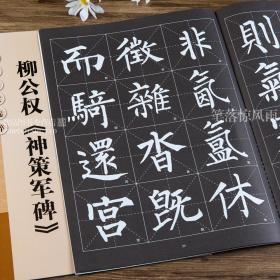 柳公权《神策军碑》
則
非氤氳休
徵雜沓既
而騎還宮
笔落惊风雨